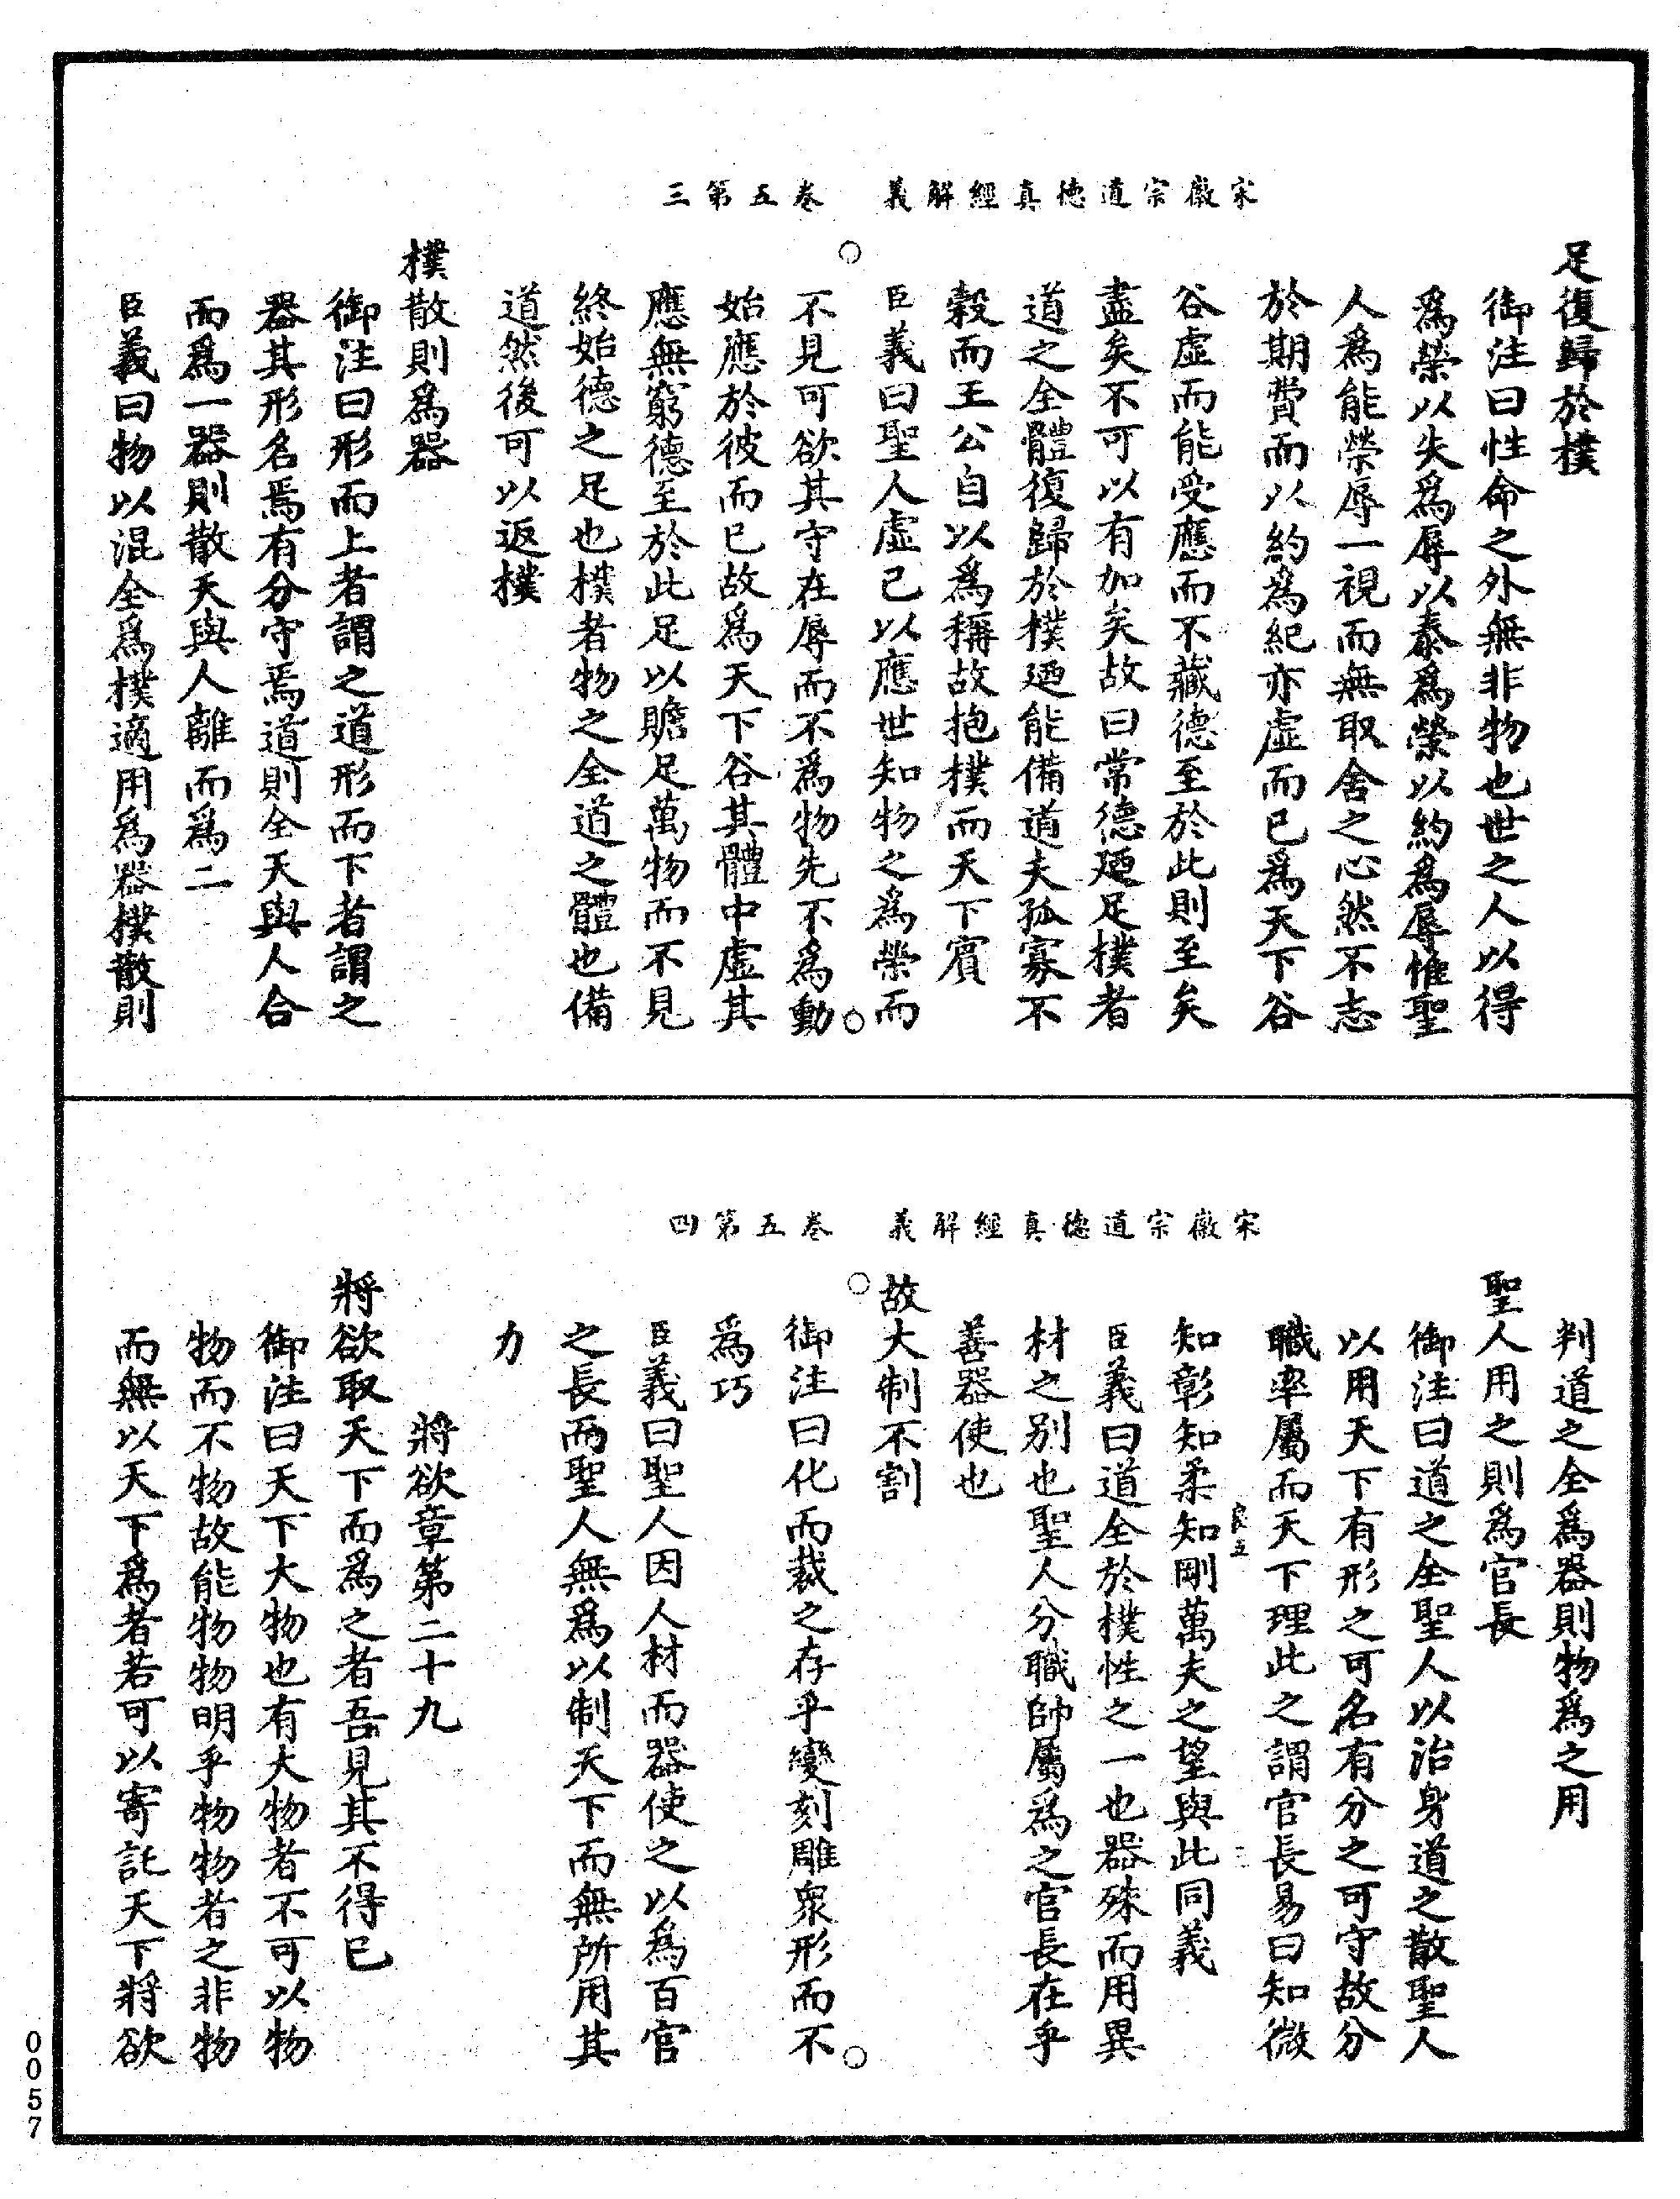 宋徽宗道德真經解義　卷五第三
足復歸於樸
御注曰性命之外無非物也世之人以得
爲榮以失爲辱以泰爲榮以約爲辱惟聖
人爲能榮辱一視而無取舍之心然不志
於期費而以約爲紀亦虛而已爲天下谷
谷虛而能受應而不藏德至於此則至矣
盡矣不可以有加矣故曰常德廼足樸者
道之全體復歸於樸廼能備道夫孤寡不
穀而王公自以爲稱故抱樸而天下賓
臣義曰聖人虛己以應世知物之爲榮而
不見可欲其守在辱而不爲物先不爲動
始應於彼而已故爲天下谷其體中虛其
應無窮德至於此足以贍足萬物而不見
終始德之足也樸者物之全道之體也備
道然後可以返樸
樸散則爲器
御注曰形而上者謂之道形而下者謂之
器其形名焉有分守焉道則全天與人合
而爲一器則散天與人離而爲二
臣義曰物以混全爲樸適用爲器樸散則
宋徽宗道德真經解義　卷五第四
判道之全爲器則物爲之用
聖人用之則爲官長
御注曰道之全聖人以治身道之散聖人
以用天下有形之可名有分之可守故分
職率屬而天下理此之謂官長易曰知微
知彰知柔知剛萬夫之望與此同義
良五
臣義曰道全於樸性之一也器殊而用異
材之別也聖人分職帥屬爲之官長在乎
善器使也
故大制不割
御注曰化而裁之存乎變刻雕衆形而不
爲巧
臣義曰聖人因人材而器使之以爲百官
之長而聖人無爲以制天下而無所用其
力
將欲章第二十九
將欲取天下而爲之者吾見其不得已
御注曰天下大物也有大物者不可以物
物而不物故能物物明乎物物者之非物
而無以天下爲者若可以寄託天下將欲
0057